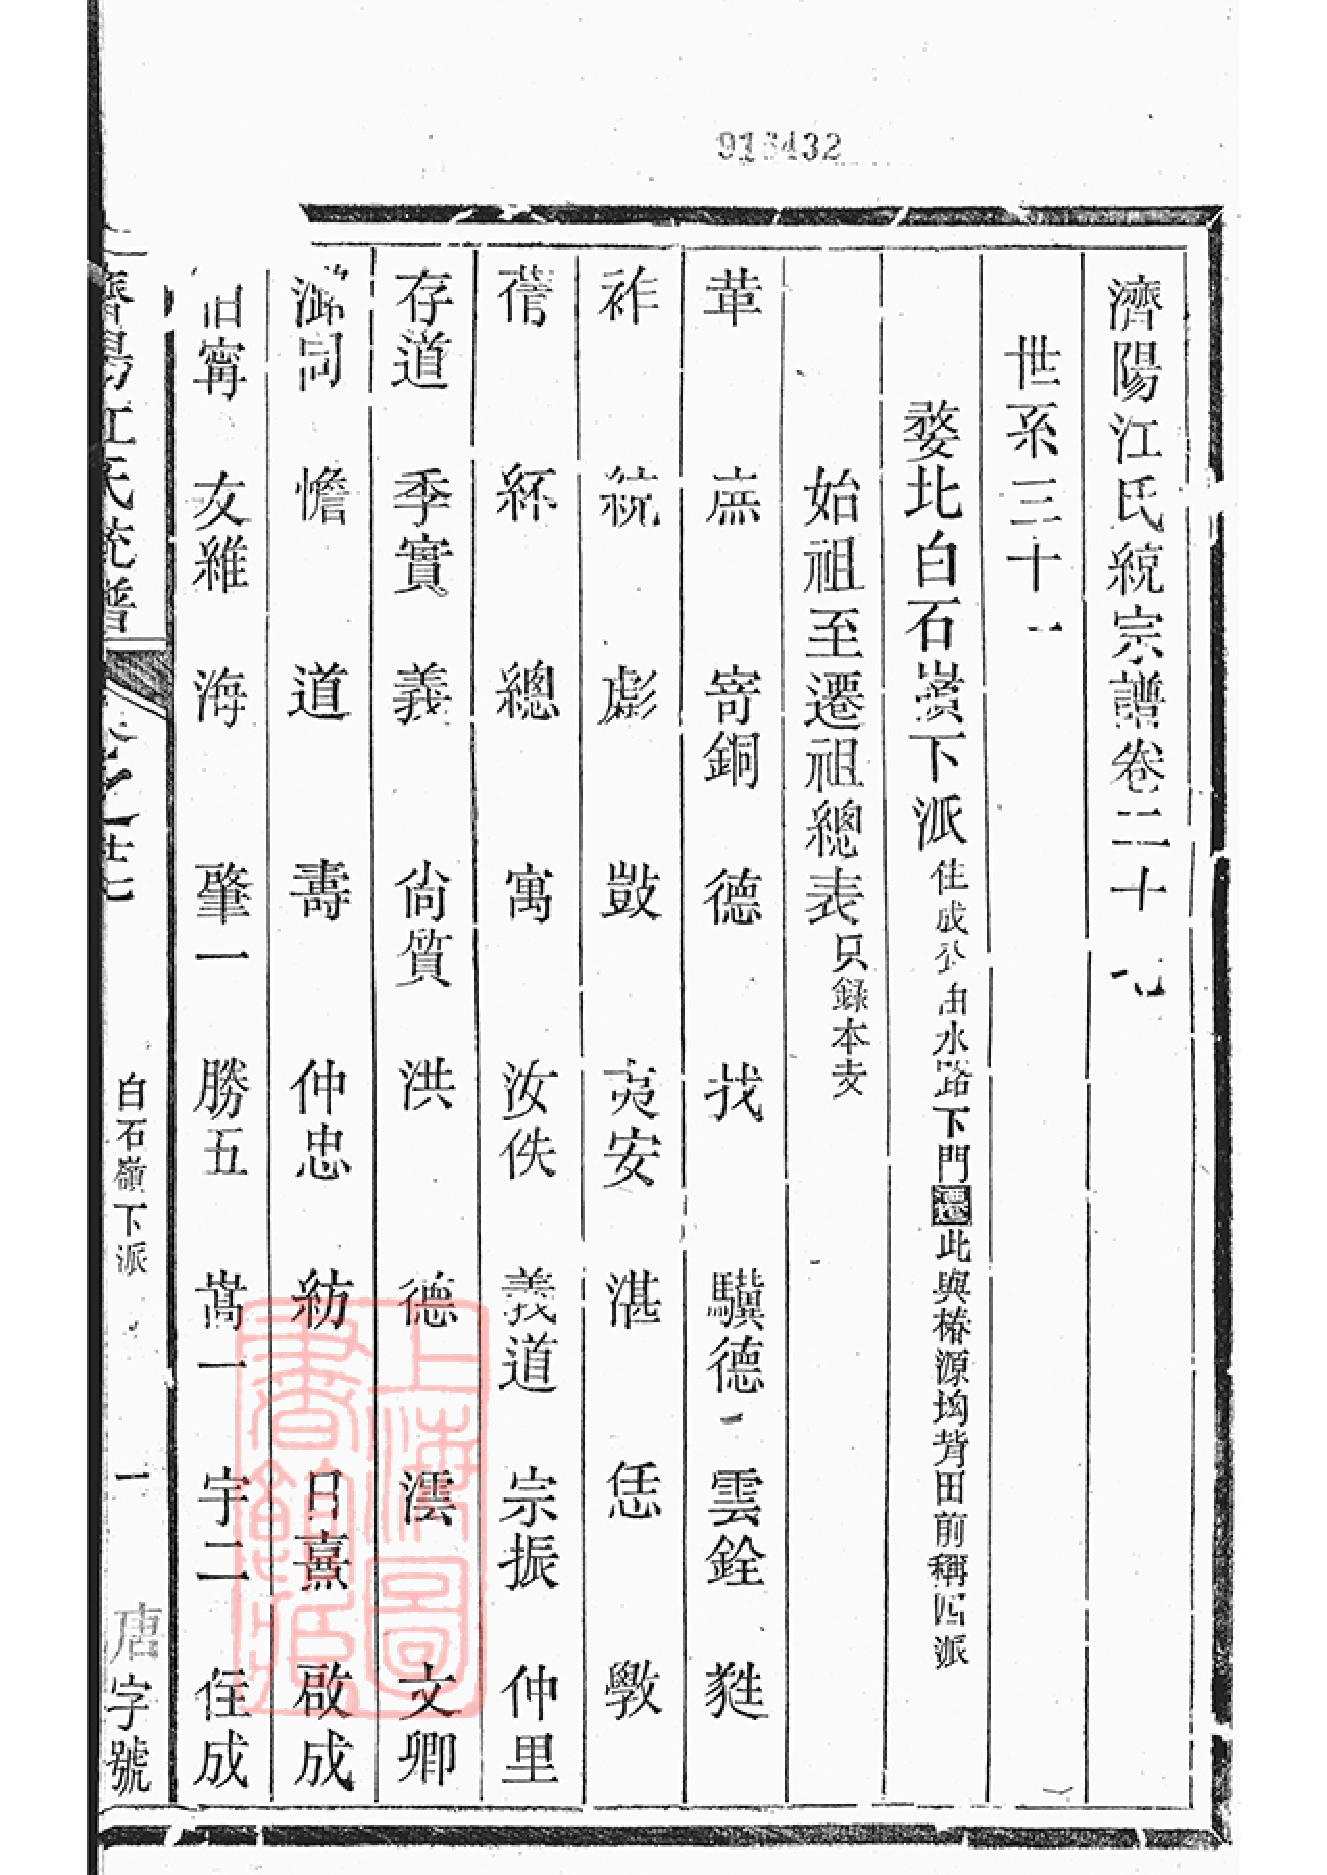 916432
濟陽江氏統宗譜卷二十七
世系三十一
婺北白石嶺下派 住成公由水路下門遷此與椿源坳背田前稱四派
始祖至遷祖總表 只錄本支
革 廡 寄銅 德 找 驥德一 雲銓 甡
祚 統 彪 鼓 夷安 湛 恁 斅
蒨 紑 總 寓 汝佚 義道 宗振 仲里
存道 季實 義 尙質 洪 德 澐 文卿
憺 道 壽 仲忠 紡 日熹 啟成
甯 友雜 海 肇一 勝五 嵩一 宇二 住成
濟陽江氏統譜 卷之廿七 白石嶺下派 一 唐字號
上海圖書館藏